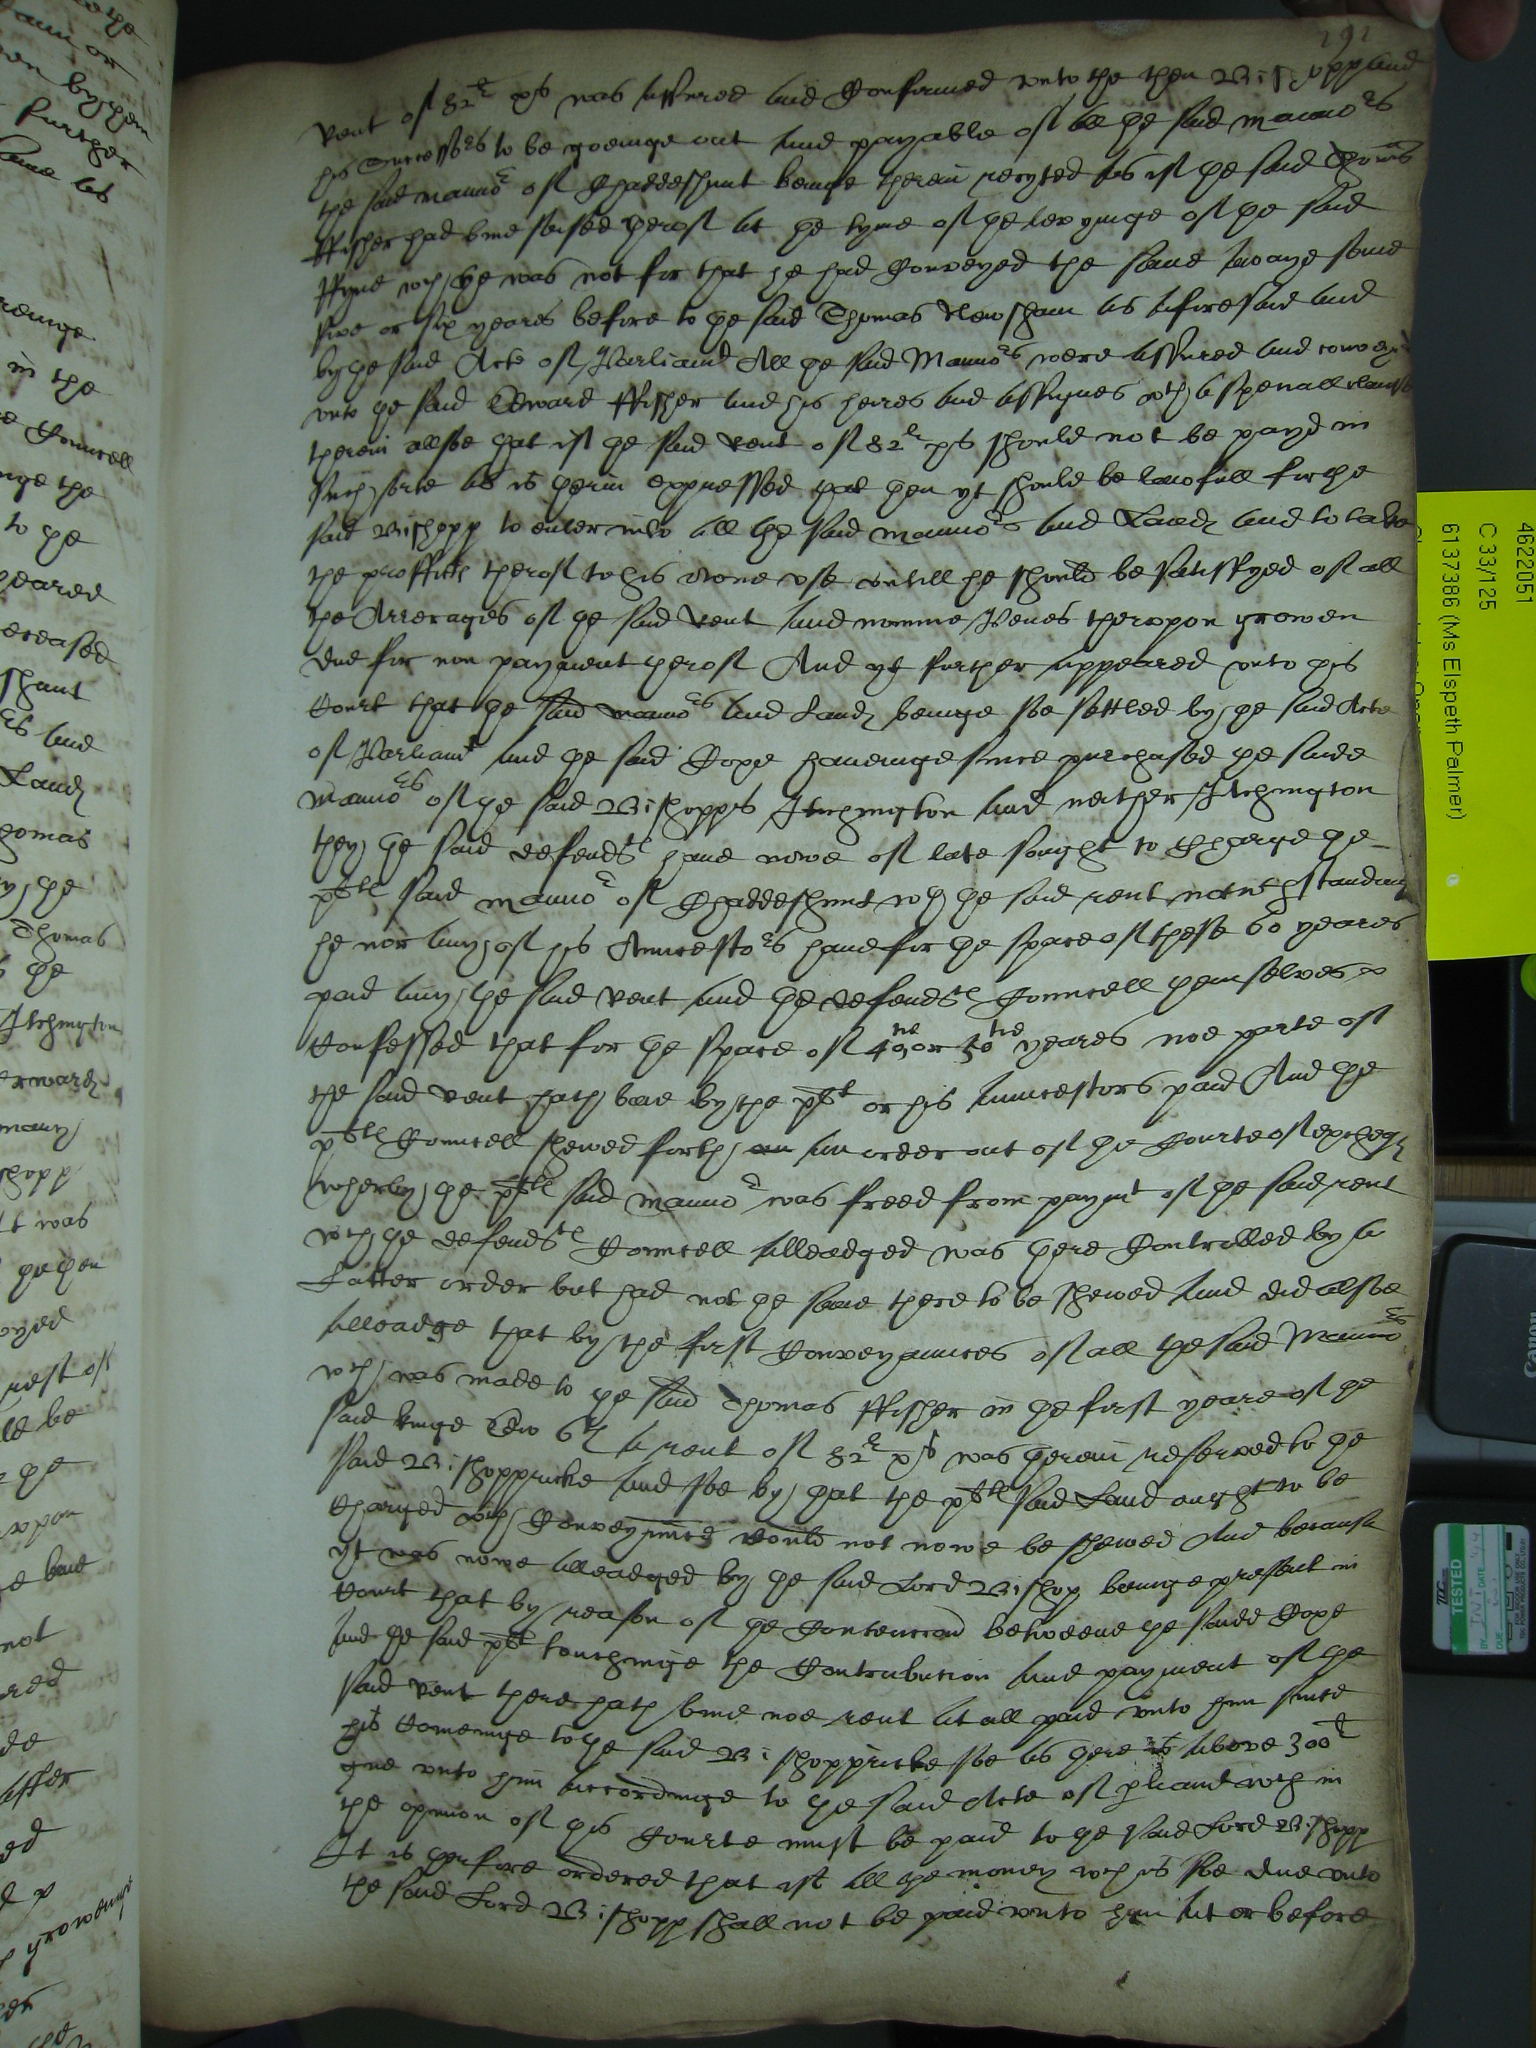 292
rent of 82li xs was assured and Confirmed vnto the then Bishopp and
his Successors to be goeinge out and payable of all the said mannors
the said mannor of Chaddeshunt beinge therein recyted as if the said Thomas
ffisher had bine seised therof at the tyme of the levyinge of the said
ffyne wch he was not for that he had Conveyed the same awaye some
five or six yeares before to the said Thomas Newsham as aforesaid and
by the said Acte of Parliamt All the said Mannors were assured and conveyed
vnto the said Edward ffisher and his heires and assignes wth a speciall clause
therein allsoe that if the said rent of 82li xs should not be payd in
such sorte as is therin expressed that then yt should be lawfull for the
said Bishopp to enter into all the said mannors and Landes and to take
the proffitts therof to his owne vse vntill he should be satisfyed of all
the Arrerages of the said rent and nomine Penes therupon growen
due for non payment therof And yt further appeared vnto this
Court that the said mannors and Landes beinge soe settled by the said Acte
of Parliamt and the said Cope haueinge since purchased the saide
mannors of the said Bishopps Itchington and neither Itchington
they the said defendts haue nowe of late sought to Charge the
plts said mannor of Chaddeshunt wth the said rent notwthstandinge
he nor any of his Auncestors haue for the space of these 60 yeares
paid any the said rent and the defendts Councell themselves
Confessed that for the space of 40tie or 50tie yeares noe parte of
the said rent hath bine by the plt or his Auncestors paid And the
plts Councell shewed forth an order out of the Courte of exchequer
wherby the plts said mannor was freed from paymt of the said rent
wch the defendts Councell alleadged was there Controlled by a
Latter order but had not the same there to be shewed And did allsoe
alleadge that by the first Conveyaunces of all the said Mannors
wch was made to the said Thomas ffisher in the first yeare of the
said kinge Edw 6th a rent of 82li xs was therein reserved to the
said Bishoppricke and soe by that the plts said Land ought to be
Charged wch Conveyance could not nowe be shewed And because
yt was nowe alleadged by the said Lord Bishop beinge present in
Court that by reason of the Contencion betweene the saide Cope
and the said plt touchinge the Contribucion and payment of the
said rent there hath bine noe rent at all paid vnto him since
his Comeinge to the said Bishoppricke soe as there is above 300li
due vnto him accordinge to the said Acte of pliamt wch in
the opinion of this Courte must be paid to the said Lord Bishopp
It is therfore ordered that if all the money wch is soe due vnto
the said Lord Bishopp shall not be paid vnto him at or before
4622051
C 33/125
6137386 (Ms Elspeth Palmer)
Canon
TESTED